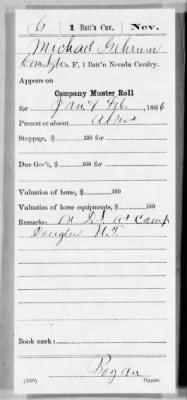 6 | 1 Batt'n Cav. | Nev.
Michael
Co. F, 1 Batt'n Nevada Cavalry.
Appears on
Company Muster Roll
for Jan & Feb, 1866
Present or absent Absent
Stoppage, $ 100 for
Due Gov't, $ 100 for
Valuation of horse, $ 100
Valuation of horse equipments, $ 100
Remarks: On D.S. at Camp
Douglas U.T.
Book mark:
Bogan
(358) Copyist.